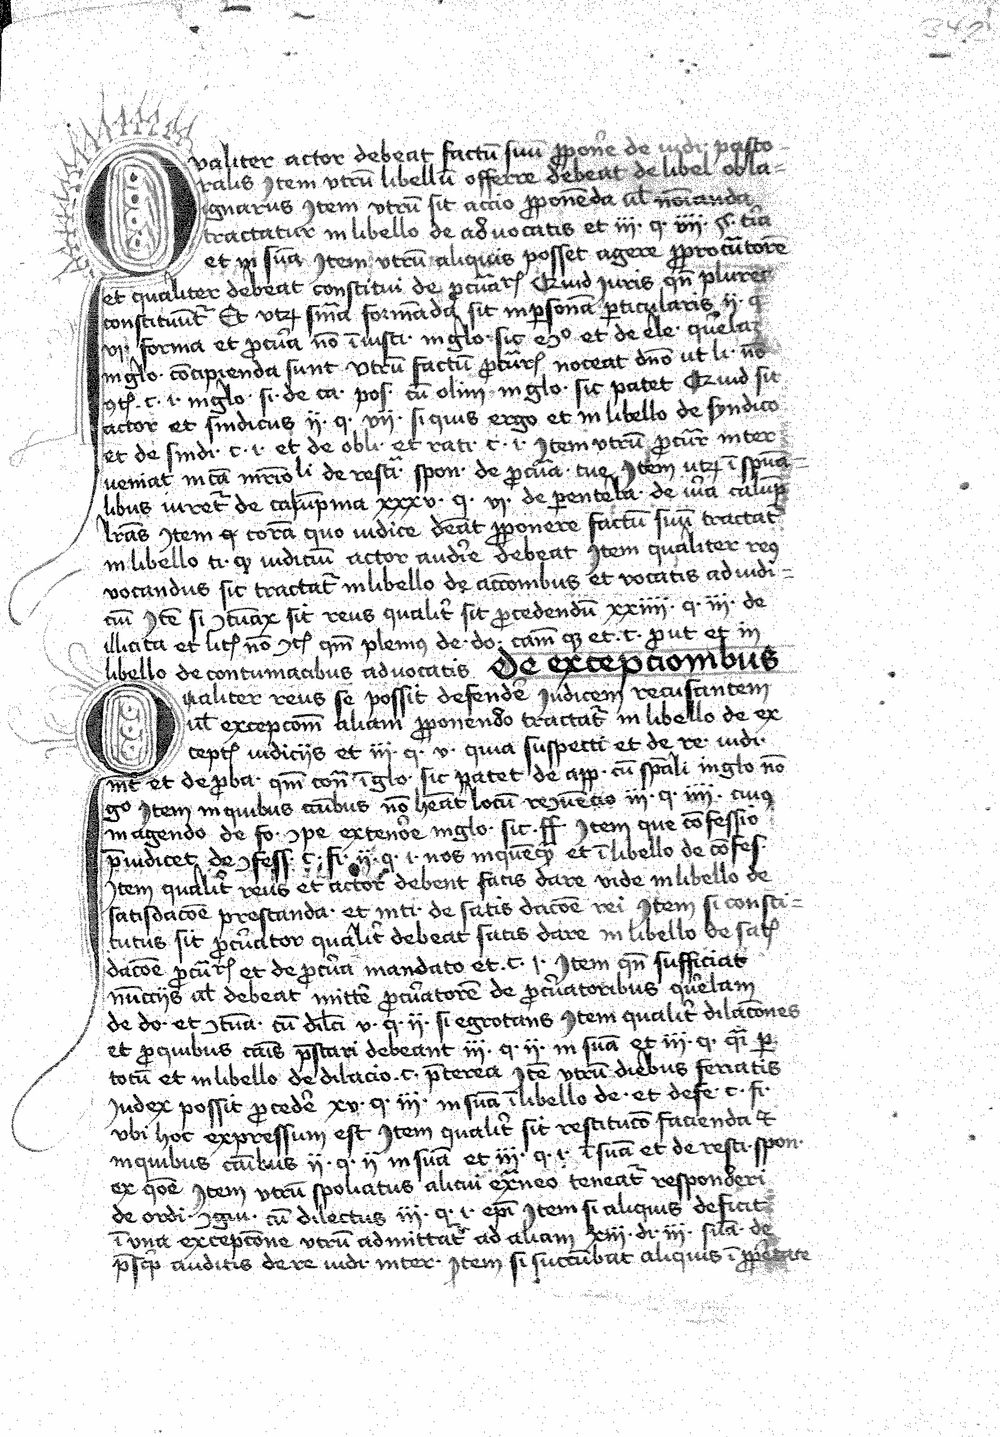 342
Qualiter actor debeat factū suū ꝓponͤe de iudi· pasto
ralis Jtem vtrū libellū offerre debeat de libel obla-
ignarus Jtem vtrū sit accio ꝓponenda ul̄ noīanda
tractatur in libello de aduocatis et iii· q· vii· §· tīa
et in sūa Jtem vtrū aliquis posset agere ꝓ procūtorē
et qualiter debeat constitui de ꝓcūar̄ Quid iuris qn̄ plures
constituūt᷑ Et vtꝝ sīīa formanda sit in ꝑsonā ꝑticularis ii· q·
vi· forma et ꝓcūa nō ī iusti· in glo· sic et de ele· qūela
in glo· concipienda sunt vtrū factū ꝓcūr̄ noceat dn̄o ut li· nō
c· i· in glo· si· de ca· pos· cū olim in glo· sic patet Quid sit
actor et sindicus ii· q· vii· si quis ergo et in libello de syndico
et de sindi· c· i· et de obli· et rati· c· i· Jtem vtrū ꝓcūr inter
ueniat in cā de resti᷑· spon· de ꝓcūa· tue Jtem utꝝ ī spūa=
libus iuret᷑ de calūpnia xxxv· q· vi· de parentela· de iūa calūp
Jtem ꝙ corā quo iudice deāt ꝓponere factū suū tractat᷑
in libello ti· iudiciū actor audire debeat Jtem qualiter reꝰ
vocandus sic tractat᷑ in libello de accōnibus et vocatis ad iudi=
ciū Jtē si ꝯtūax sit reus qualit᷑ sit ꝓcedendū xxiiii· q· iii· de
illicita et lit̄ nō ꝯt̄ qm̄ plenius de· do· cām et· c· ꝓut et in
libello de contumacibus advocatis De excepcionibus
Qualiter reus se possit defendē Judicem recusantem
ul̄ excepcōm aliam ꝓponendo tractat᷑ in libello de ex
cept̄ iudicijs et iii· q· v· quia suspecti et de re· iudi·
int et de ꝓba· qm̄ con̄ ī glo· sic patet de app· cū spāli in glo nō
go Jtem in quibus cāibus nō heāt locū recūencio iii· q· iiii· cuiꝰ
in agendo de fo· ꝯpe exteriore in glo· sic· ff· Jtem que cōfessio
p̄iudicet de ꝯfess· c· fi· ii· q· i· nos in quēqꝫ et ī libello de cōfes·
Jtem qualit᷑ reus et actor debent satis dare vide in libello de
satisdacōe prestanda· et in ti· de satis dacōe rei Jtem si consti=
tutus sit ꝓcūator qualit᷑ debeat satis dare in libello de sat̄
dacōe ꝓcūr̄ et de ꝓcūa mandato et· c· i· Jtem qn̄ sufficiat
nūccijs ul̄ debeat mittē ꝓcūatorē de ꝓcūatoribus qūelam
de do· et ꝯtūa· cū dilc̄i v· q· ii· si egrotans Jtem qualit᷑ dilacōnes
et ꝓ quibus cāis p̄stari debeant iii· q· ii· in sūa et iii· q· ꝑ
totū et in libello de dilacio· c· p̄terea Jtē vtrū diebus feriatis
Judex possit ꝓcedē xv· q· iii· in sūa ī libello de· et defe· c· fi·
vbi hoc expressum est Jtem qualit᷑ sit restitucō facienda et
in quibus cāibus ii· q· ii in sūa et iii· q· i· ī sūa et de resti· spon·
ex qōe Jtem vtrū spoliatus alicui ex̄neo teneat᷑ responderi
de ordi· ꝯgni· cū dilectus iii· q· i· epī Jtem si aliquis deficit
ī una excepcōne vtrū admittat᷑ ad aliam xiii· di· iii· sūa· de
p̄sc̄p auditis de re iudi· inter· Jtem si succūbat aliquis ī ꝓprietate